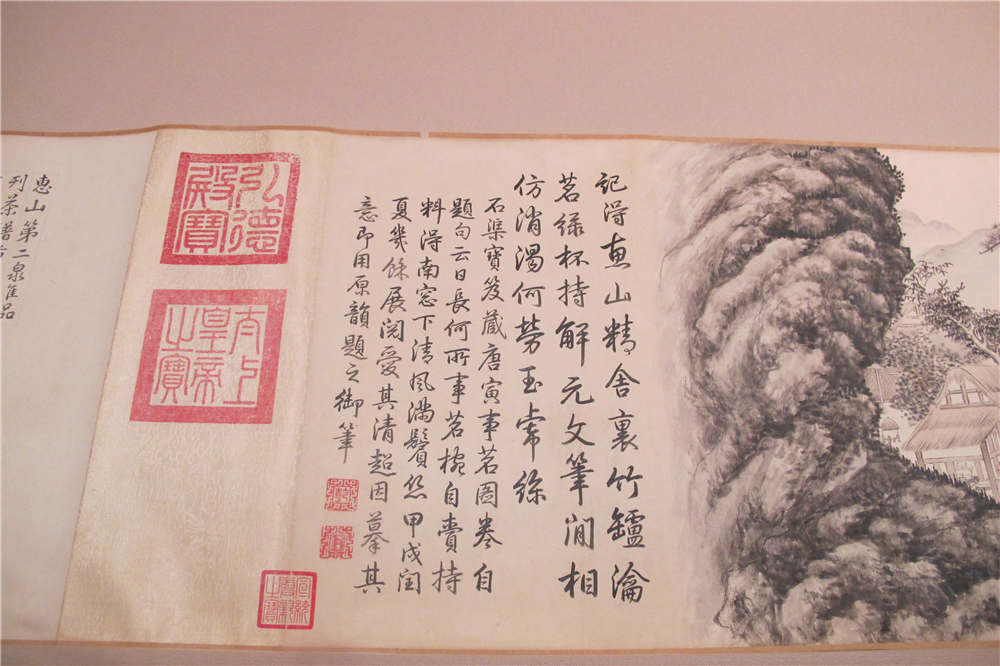 記得惠山精舍裏竹鑪瀹
茗綠杯持解元文筆閒相
仿消渴何勞玉虎絲
石渠寶笈藏唐寅事茗圖卷自
題句云日長何所事茗椀自賫持
料得南窓下清風滿鬢絲甲戌閏
夏幾餘展閱愛其清超因摹其
意即用原韻題之御筆
弘德
殿寶
太上
皇帝
之寶
惠山第二泉隹品
列茶譜